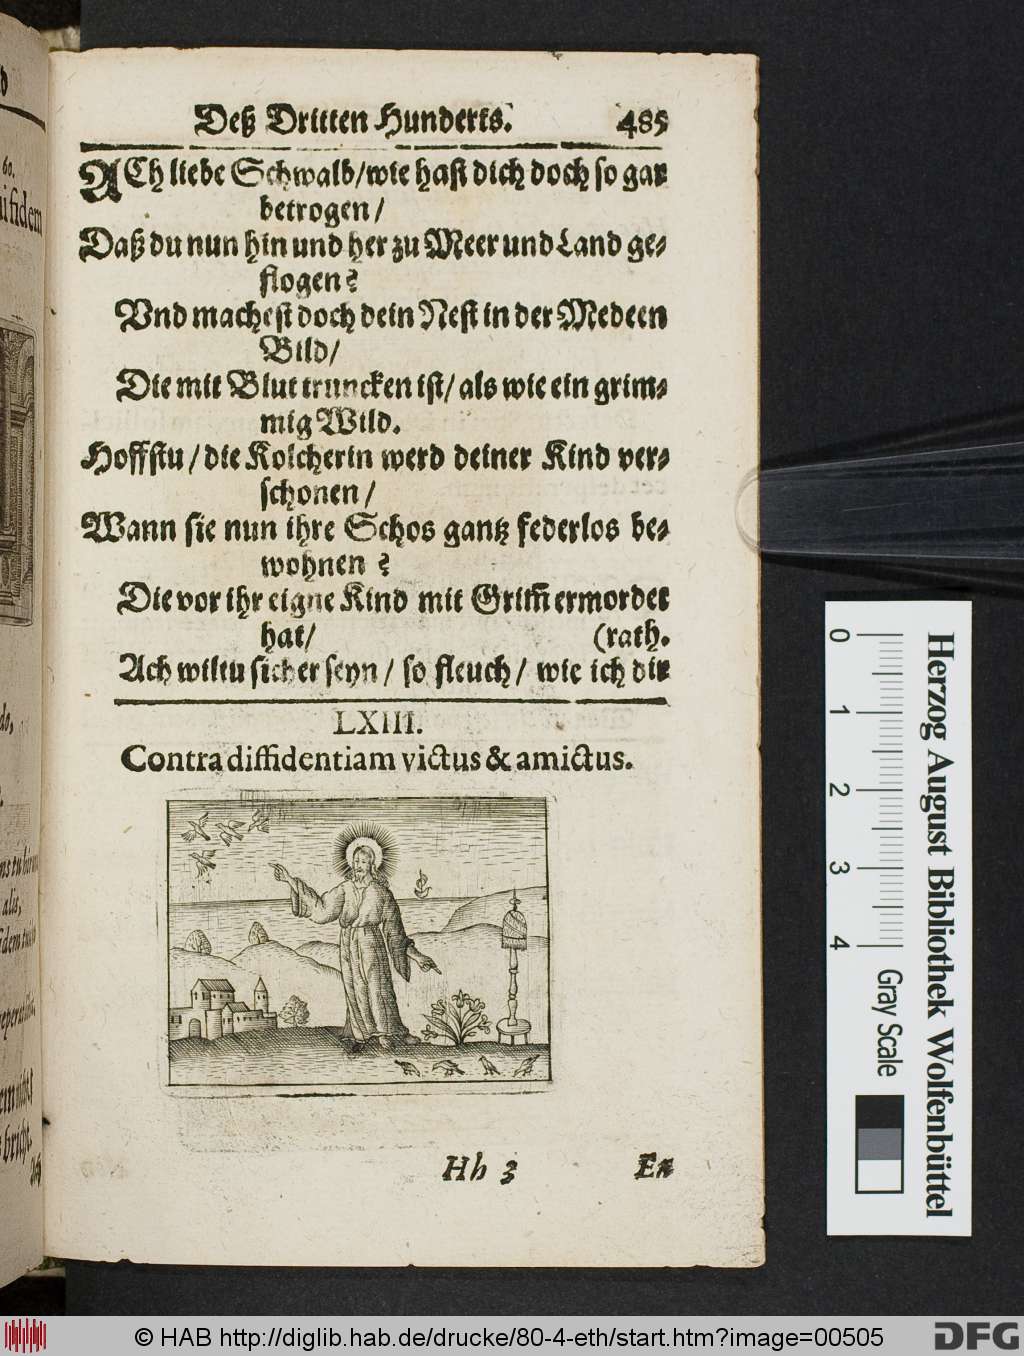 Deß Dritten Hunderts. 485
ACh liebe Schwalb/wie hast dich doch so gar
betrogen/
Daß du nun hin und her zu Meer und Land ge⸗
flogen?
Vnd machest doch dein Nest in der Medeen
Bild/
Die mit Blut truncken ist/ als wie ein grim⸗
mig Wild.
Hoffstu/ die Kolcherin werd deiner Kind ver⸗
schonen/
Wann sie nun ihre Schos gantz federlos be⸗
wohnen?
Die vor ihr eigne Kind mit Grim̃ ermordet
hat/ (rath.
Ach wiltu sicher seyn/ so fleuch/ wie ich dir
LXIII.
Contra diffidentiam victus & amictus.
Hh 3 En
60.
fidem
do,
alis,
0 1 2 3 4
Herzog August Bibliothek Wolfenbüttel
Gray Scale
© HAB http://diglib.hab.de/drucke/80-4-eth/start.htm?image=00505
DFG